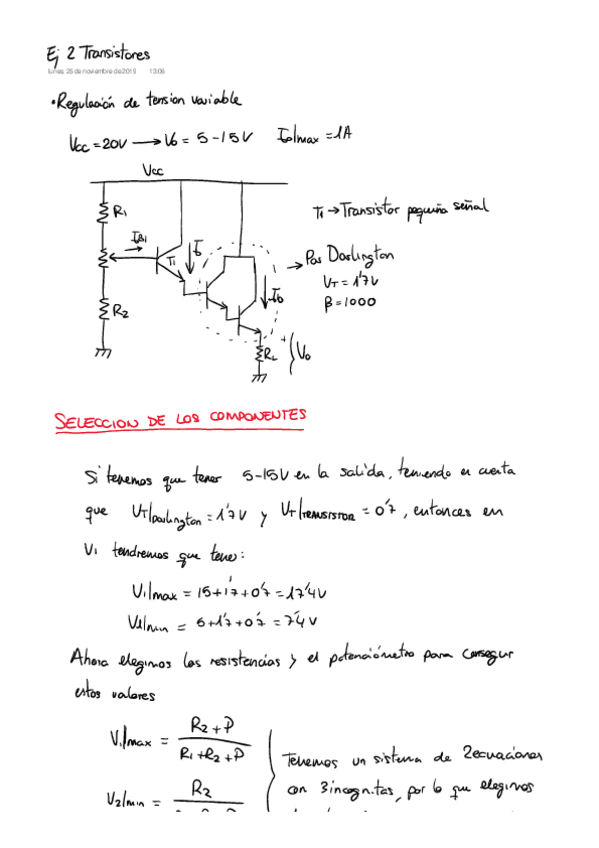 Ej 2 Transistores
lunes, 25 de noviembre de 2019 13:06
• Regulación de tension variable
Vcc = 20V → Vo = 5-15V Io|max = 1A
Vcc
R1
IB1
T1
Io
Io
R2
RL
+
Vo
T1 → Transistor pequeña señal
→ Par Darlington
VT = 1'7V
β = 1000
SELECCION DE LOS COMPONENTES
Si tenemos que tener 5-15V en la salida, teniendo en cuenta
que VT|Darlington = 1'7V y VT|TRANSISTOR = 0'7, entonces en
V1 tendremos que tener:
V1|max = 15+1'7+0'7 = 17'4V
V1|min = 5+1'7+0'7 = 7'4V
Ahora elegimos las resistencias y el potenciómetro para conseguir
estos valores
V1|max = R2+P / R1+R2+P
Tenemos un sistema de 2 ecuaciones
V2|min = R2
con 3 incognitas, por lo que elegimos